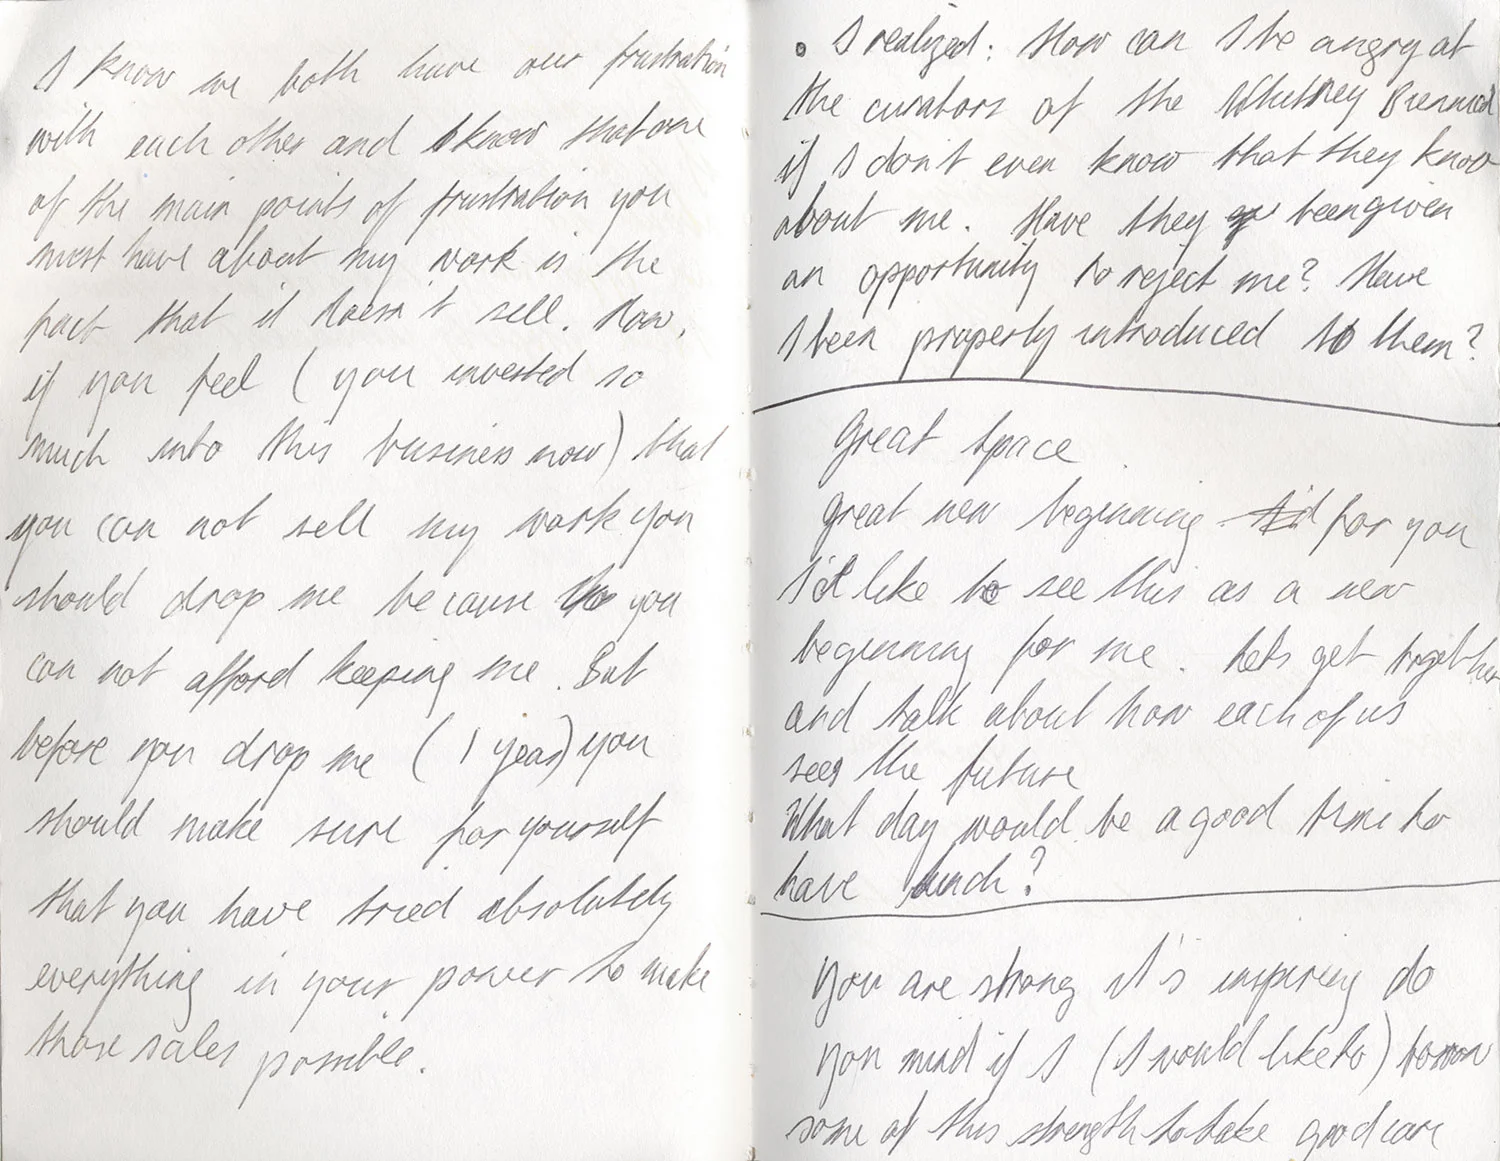 I know we both have our frustration
with each other and I know that one
of the main points of frustration you
must have about my work is the
fact that it doesn't sell. Now,
if you feel (you invested so
much into this business now) that
you can not sell my work you
should drop me because you
can not afford keeping me. But
before you drop me (1 year) you
should make sure for yourself
that you have tried absolutely
everything in your power to make
those sales possible.
• I realized: How can I be angry at
the curators of the Whitney Biennial
if I don't even know that they know
about me. Have they been given
an opportunity to reject me? Have
I been properly introduced to them?
Great space
great new beginning for you
I'd like to see this as a new
beginning for me. Lets get together
and talk about how each of us
sees the future
What day would be a good time to
have lunch?
You are strong it's inspiring do
you mind if I (I would like to) borrow
some of this strength to take good care